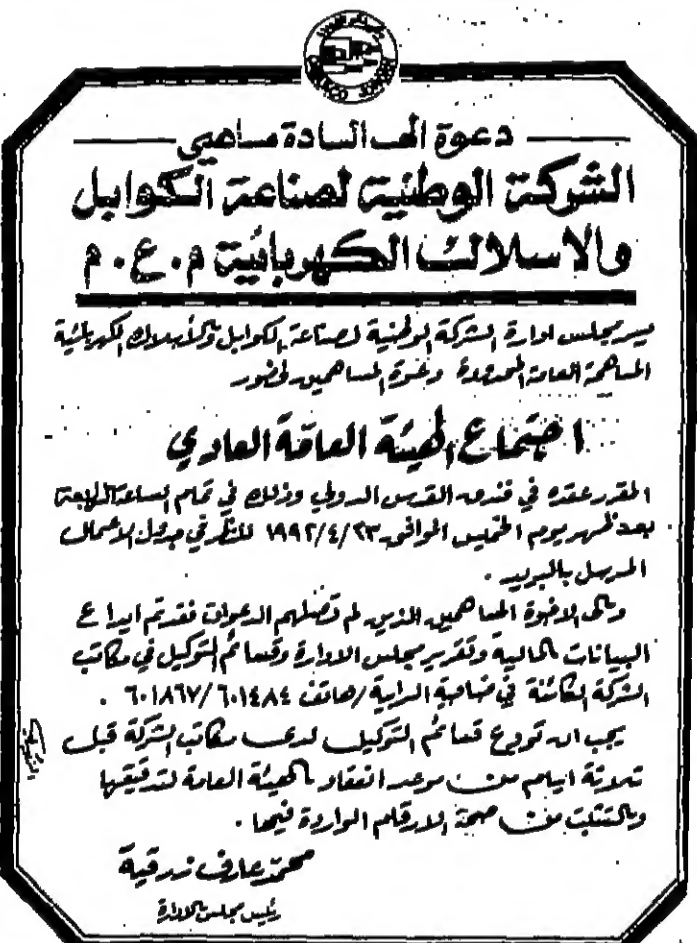 دعوة الى السادة مساهمي
الشركة الوطنية لصناعة الكوابل
والاسلاك الكهربائية م.ع.م
يسر مجلس ادارة الشركة الوطنية لصناعة الكوابل والأسلاك الكهربائية
المساهمة العامة المحدودة دعوة المساهمين لحضور
اجتماع الهيئة العامة العادي
المقرر عقده في فندق القدس الدولي وذلك في تمام الساعة الرابعة
بعد ظهر يوم الخميس الموافق ١٩٩٢/٤/٢٣ للنظر في جدول الاعمال
المرسل بالبريد .
وعلى الاخوة المساهمين الذين لم تصلهم الدعوات فقد تم ايداع
البيانات المالية وتقرير مجلس الادارة وقسائم التوكيل في مكاتب
الشركة الكائنة في ضاحية الرابية / هاتف ٦٠١٤٨٤ / ٦٠١٨٦٧ .
يجب ان تودع قسائم التوكيل لدى مكاتب الشركة قبل
ثلاثة ايام من موعد انعقاد الهيئة العامة لتدقيقها
والتثبت من صحة الارقام الواردة فيها .
محمد عارف
رئيس مجلس الادارة